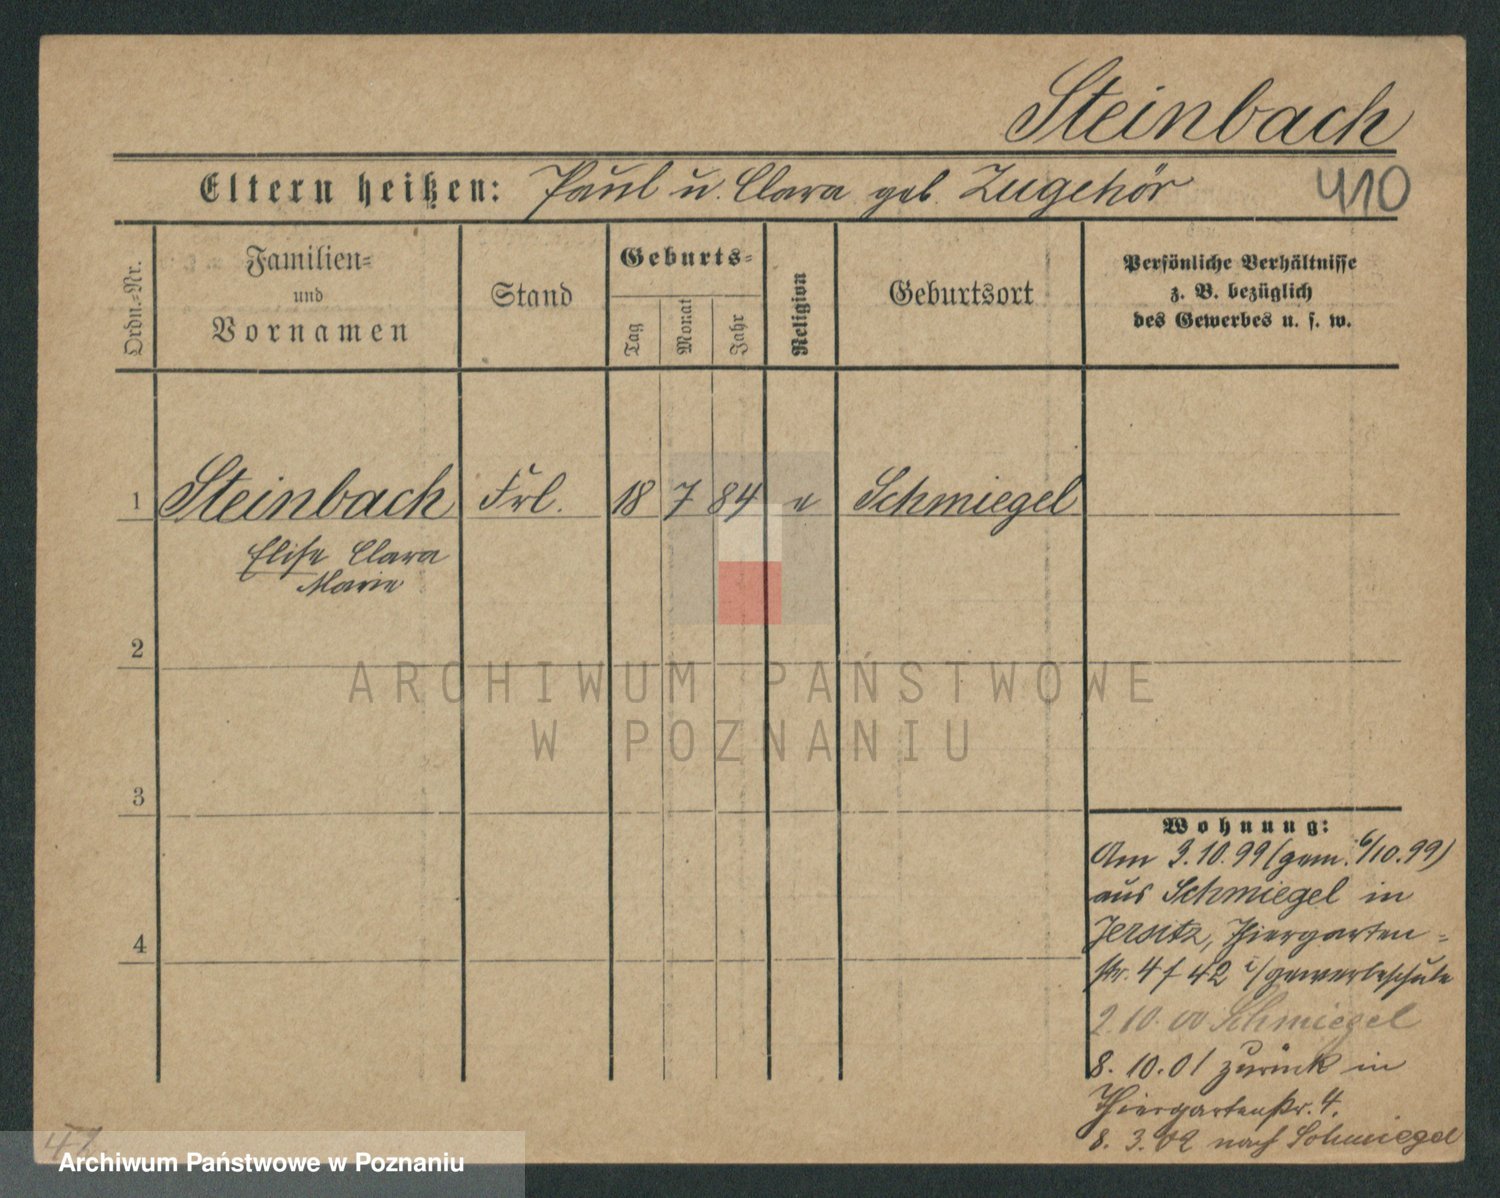 Steinbach
Eltern heißen: Paul u. Clara geb. Zugehör
410
Ordn.-Nr.
Familien-
und
Vornamen
Stand
Geburts-
Tag
Monat
Jahr
Religion
Geburtsort
Persönliche Verhältnisse
z. B. bezüglich
des Gewerbes u. s. w.
1 Steinbach Frl. 18 7 84 e Schmiegel
Elise Clara
Marie
2
3
4
ARCHIWUM PAŃSTWOWE
W POZNANIU
Wohnung:
Am 3.10.99 (gem. 6/10.99)
aus Schmiegel in
Jersitz, Thiergarten-
str. 4 42 Gewerbeschule
2.10.00 Schmiegel
8.10.01 zurück in
Thiergartenstr. 4.
8.3.02 nach Schmiegel
Archiwum Państwowe w Poznaniu